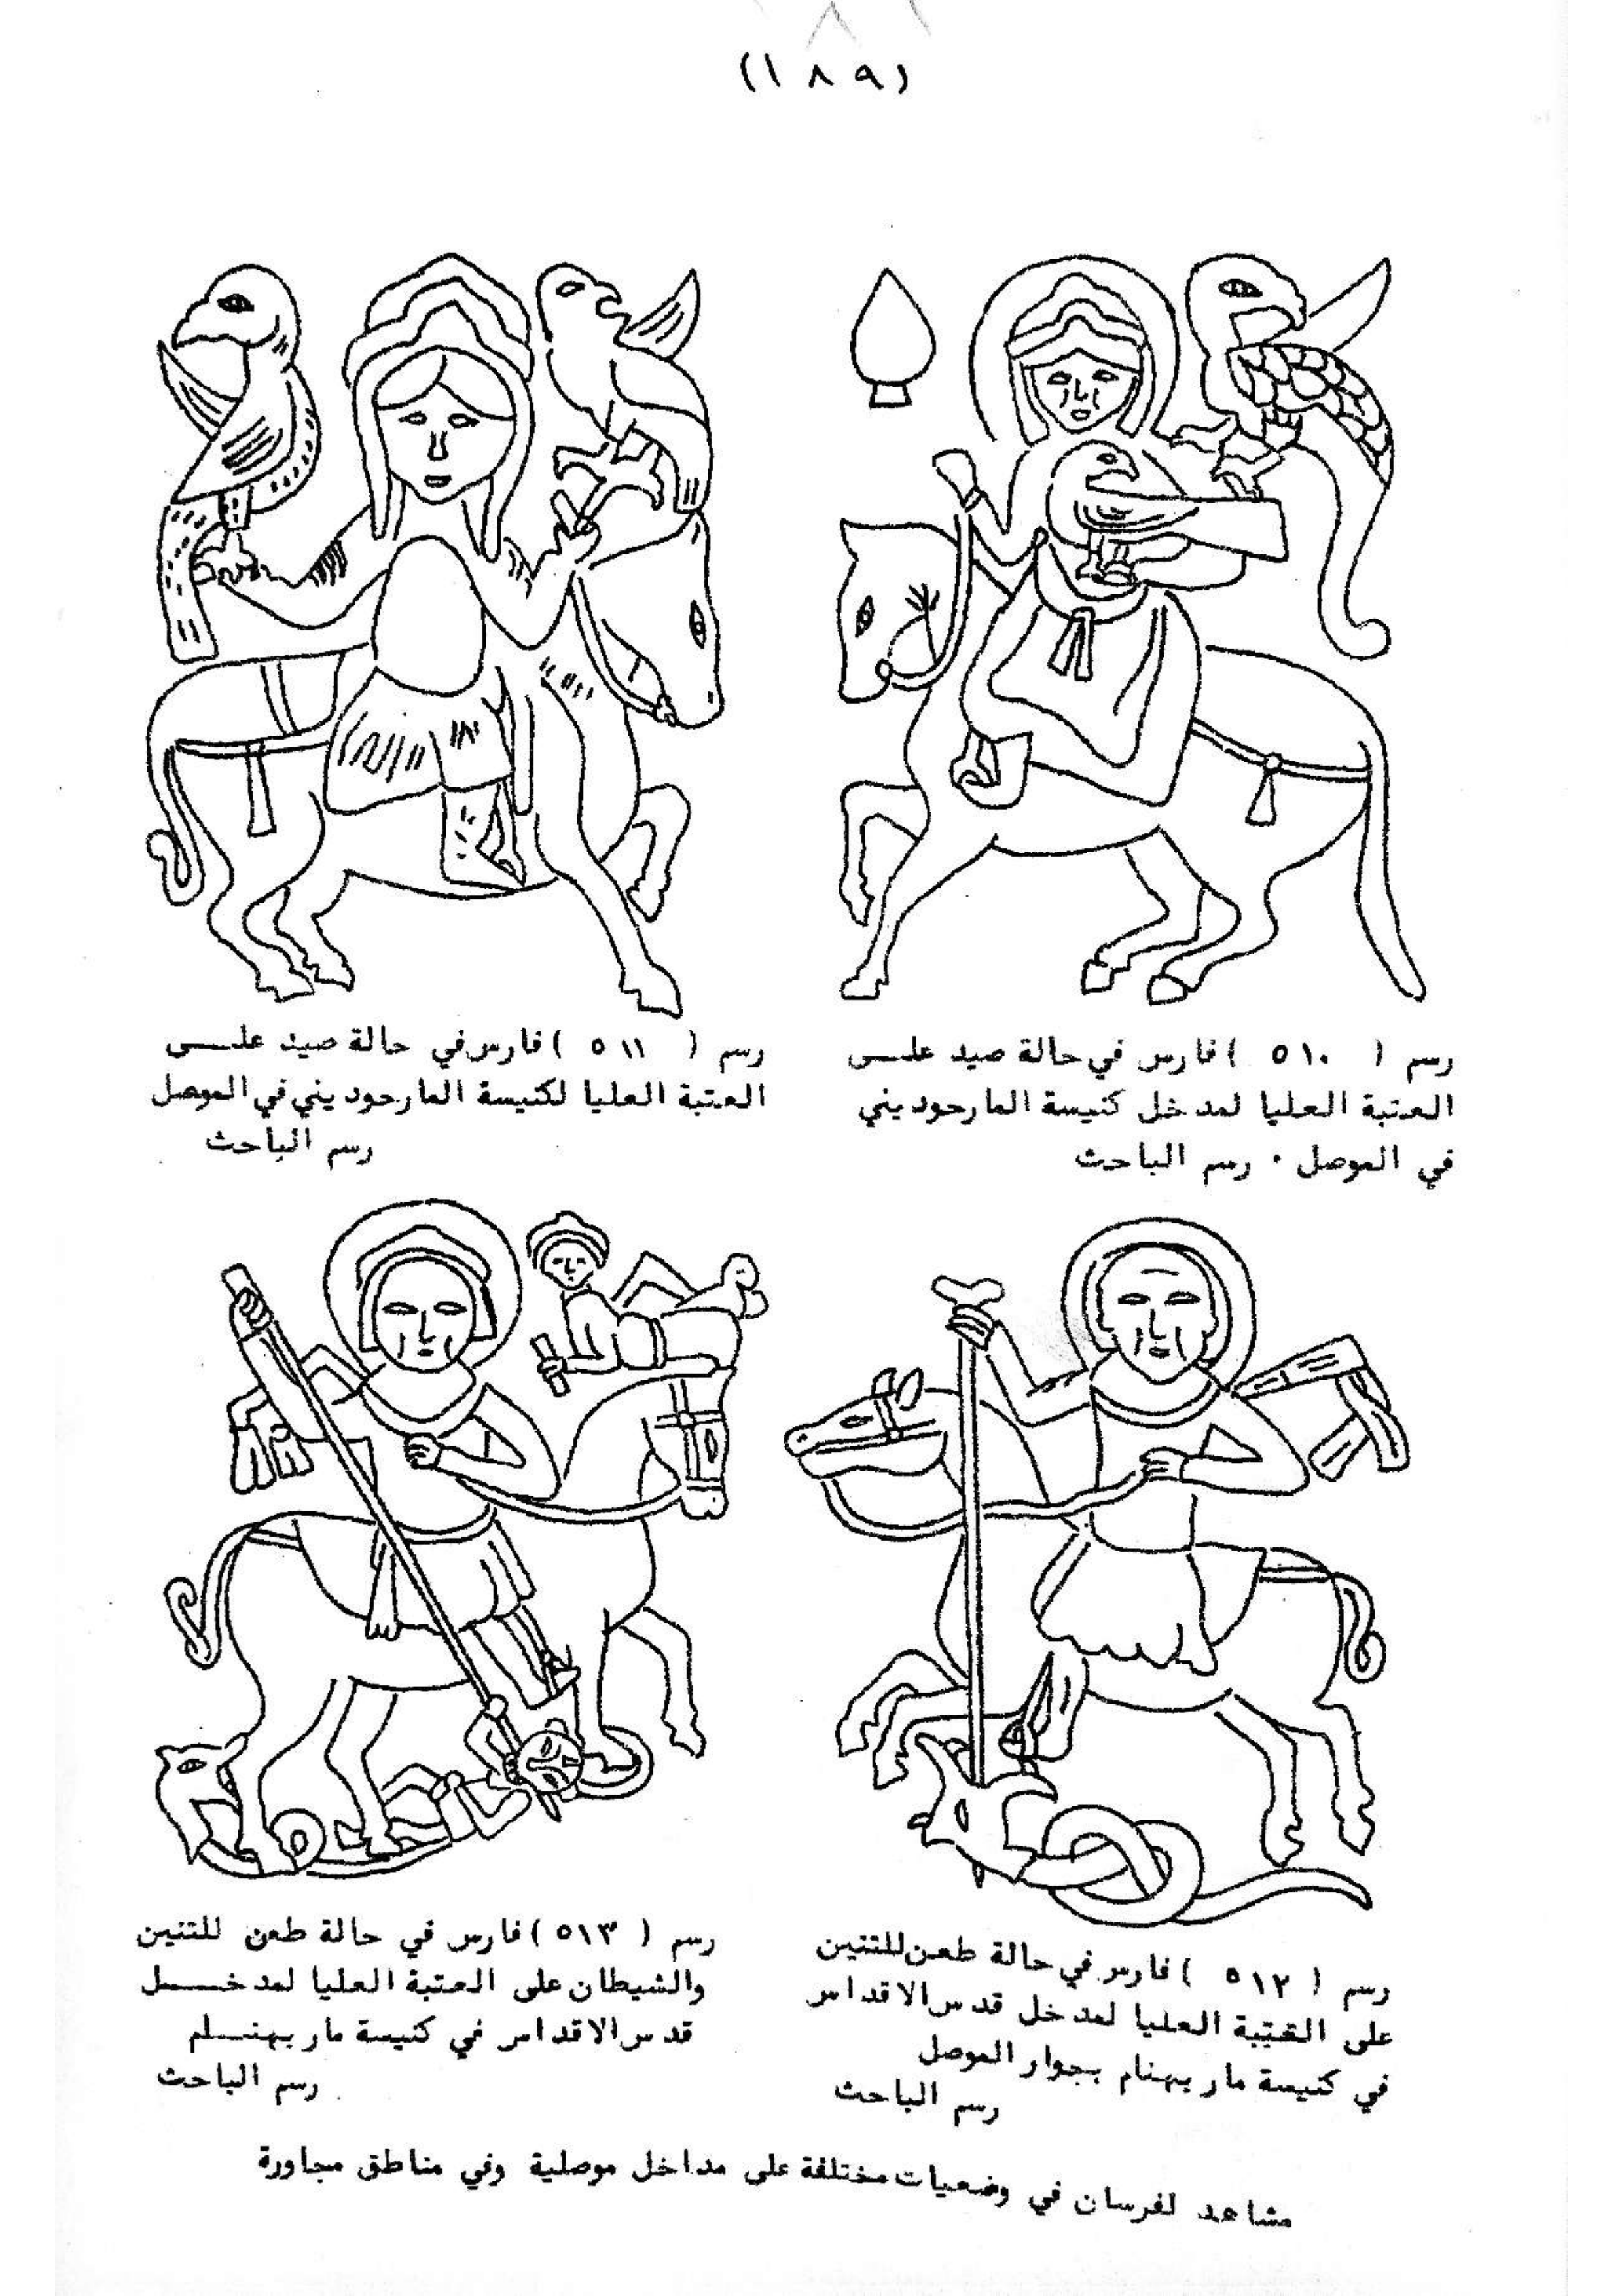 (١٨٩)
رسم ( ٥١٠ ) فارس في حالة صيد علـــى
العتبة العليا لمدخل كنيسة المارحوديني
في الموصل . رسم الباحث
رسم ( ٥١١ ) فارس في حالة صيد علـــى
العتبة العليا لكنيسة المارحوديني في الموصل
رسم الباحث
رسم ( ٥١٢ ) فارس في حالة طعن للتنين
على العتبة العليا لمدخل قدس الاقداس
في كنيسة مار بهنام بجوار الموصل
رسم الباحث
رسم ( ٥١٣ ) فارس في حالة طعن للتنين
والشيطان على العتبة العليا لمدخـــل
قدس الاقداس في كنيسة مار بهنــام
رسم الباحث
مشاهد لفرسان في وضعيات مختلفة على مداخل موصلية وفي مناطق مجاورة